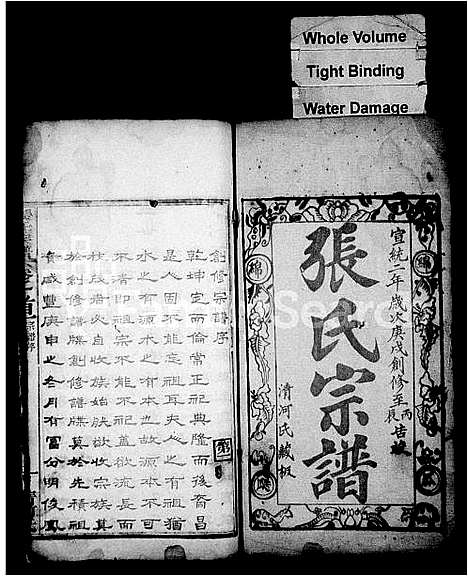 Whole Volume
Tight Binding
Water Damage
宣統二年歲次庚戌創修至丙辰告竣
張氏宗譜
清河氏藏板
綿
創修宗譜序
乾坤定而倫常正祀典隆而後裔昌
是人固不能忘祖耳夫人之有祖猶
水之有源木之有本也故源本不可
不清即祖宗不能不祀蓋欲流長而
枝茂者必自收族始然欲收宗族莫
於創修譜牒創修譜牒莫於先積祖
咸豐庚申之冬月有富分明俊鳳